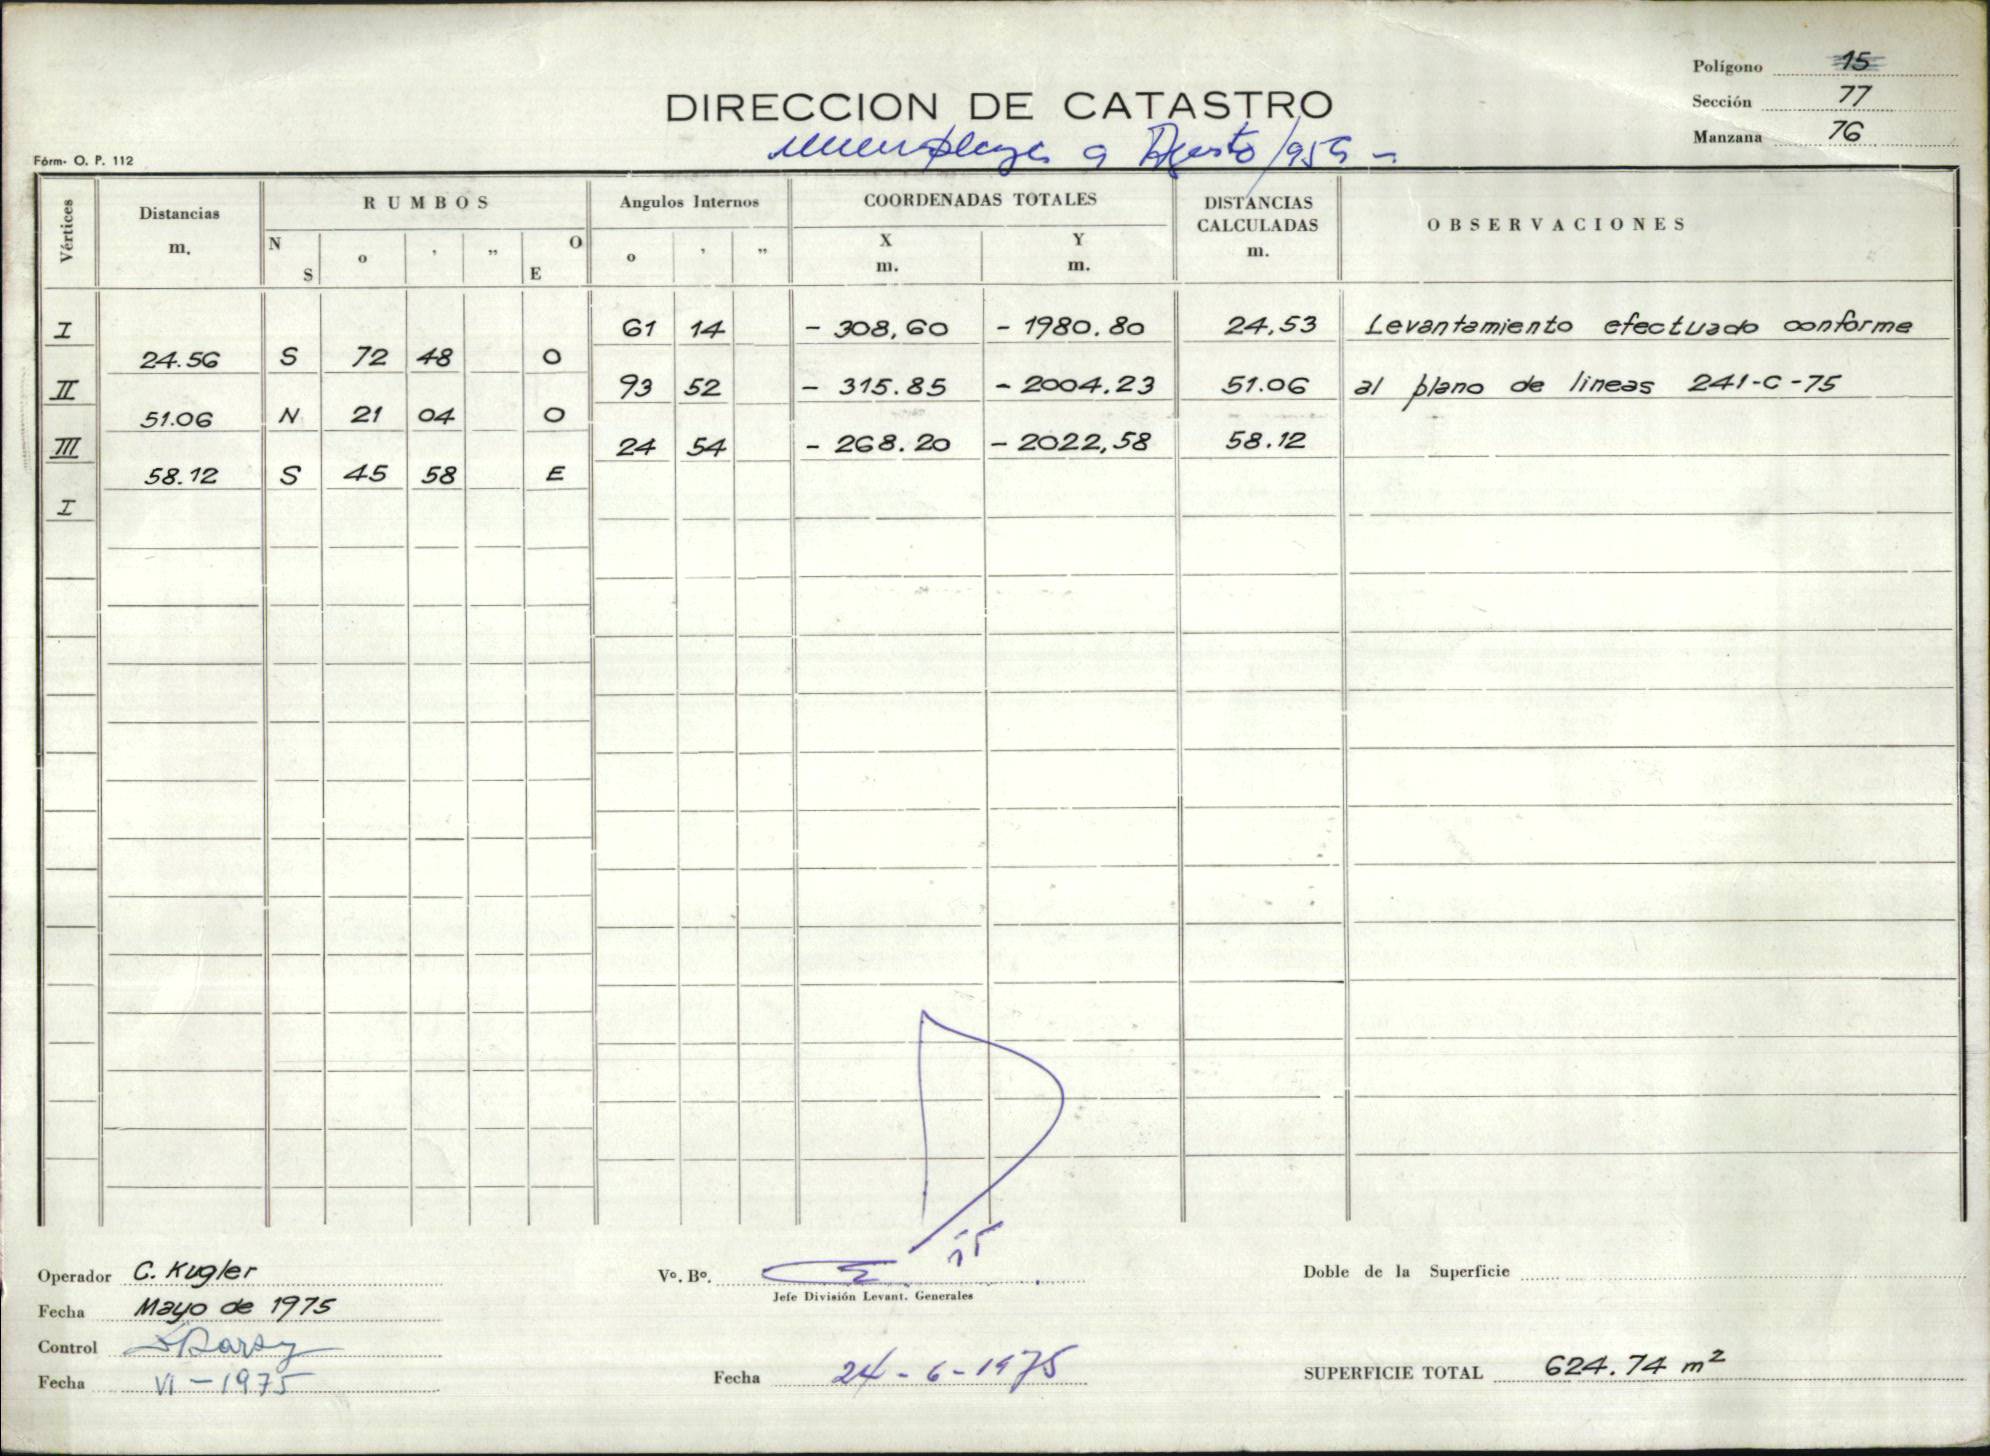 Polígono 15
Sección 77
Manzana 76
DIRECCION DE CATASTRO
a Agosto/959 -
Fórm. O. P. 112
Vértices Distancias m. RUMBOS N S o ' " O E Angulos Internos o ' " COORDENADAS TOTALES X m. Y m. DISTANCIAS CALCULADAS m. OBSERVACIONES
I 61 14 - 308,60 - 1980.80 24,53 Levantamiento efectuado conforme
24.56 S 72 48 O
II 93 52 - 315.85 - 2004.23 51.06 al plano de lineas 241-C-75
51.06 N 21 04 O
III 24 54 - 268.20 - 2022,58 58.12
58.12 S 45 58 E
I
Operador C. Kugler
Vº. Bº.
Jefe División Levant. Generales
Doble de la Superficie
Fecha Mayo de 1975
Control
Fecha VI-1975
Fecha 24-6-1975
SUPERFICIE TOTAL 624.74 m²